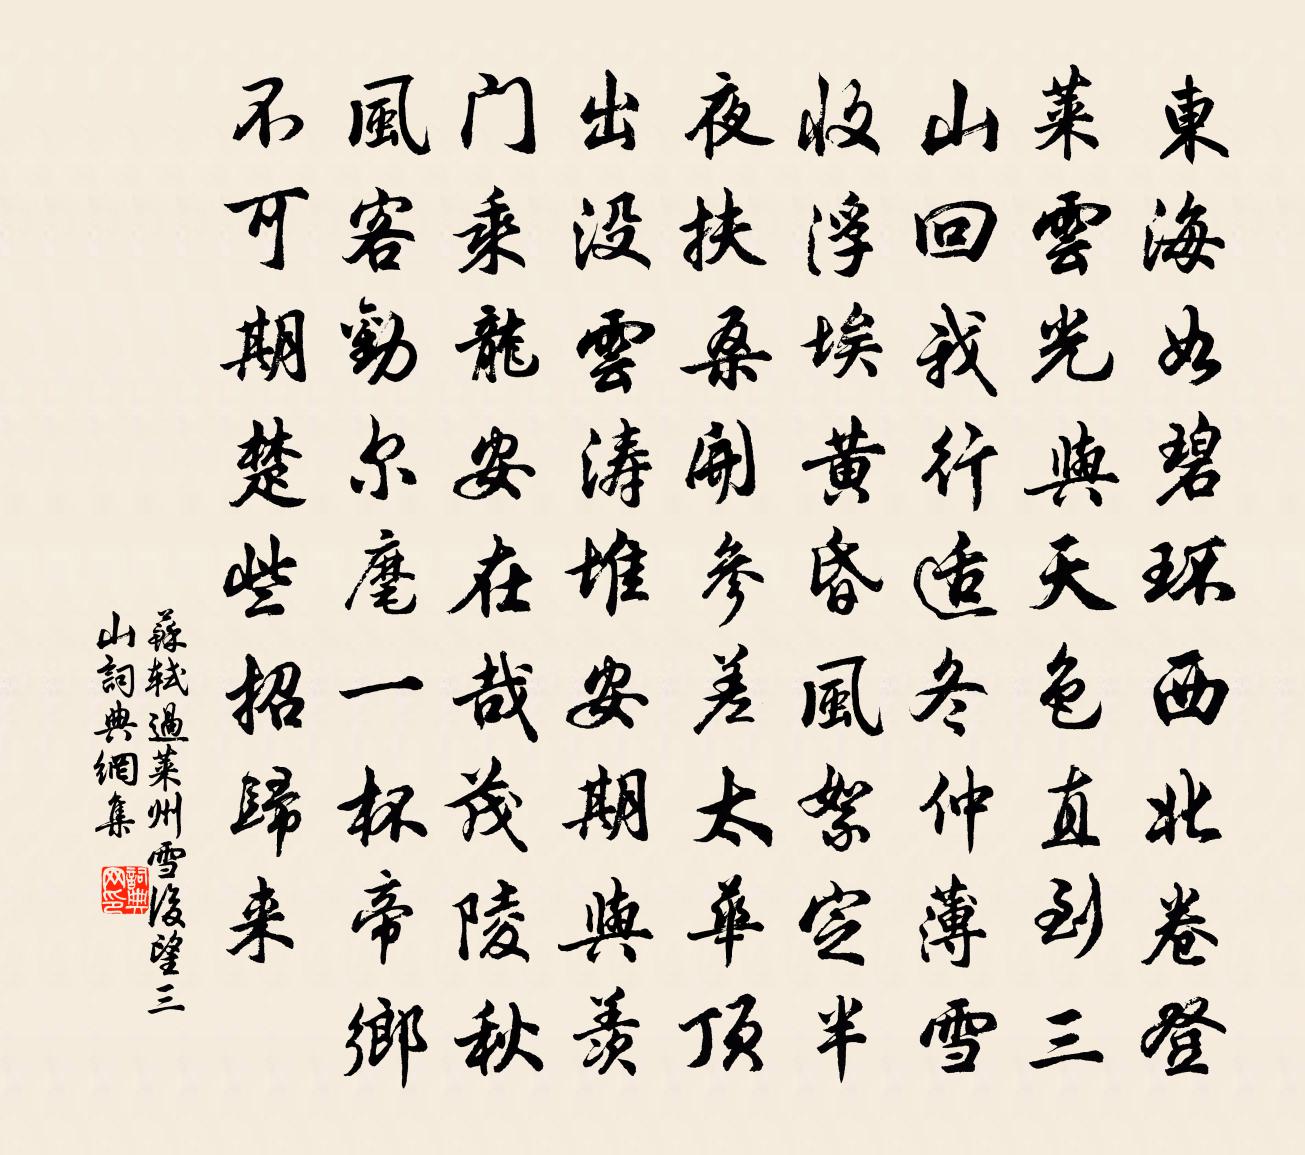 東海如碧环西北卷登
萊雲光與天色直到三
山回我行适冬仲薄雪
收浮埃黄昏風絮定半
夜扶桑開參差太華頂
出没雲濤堆安期與羨
门乘龍安在哉茂陵秋
風客勸尔麾一杯帝鄉
不可期楚些招歸来
蘇轼過萊州雪後望三
山詞典網集
詞典
网印